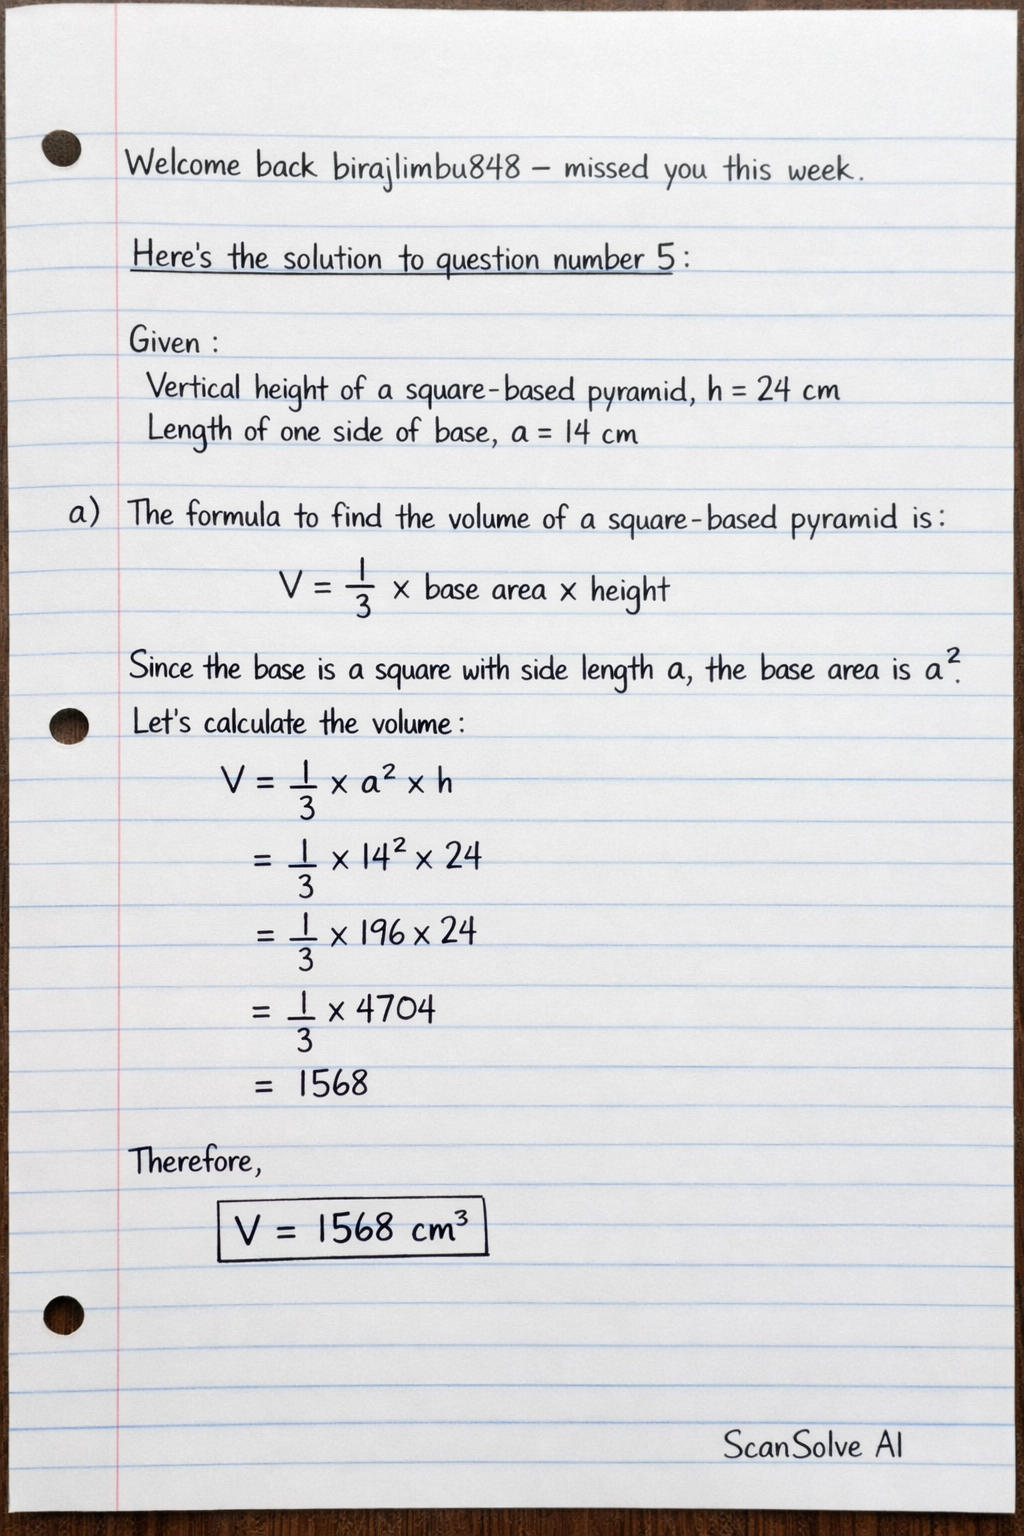 Welcome back birajlimbu848 – missed you this week.
Here's the solution to question number 5:
Given :
Vertical height of a square-based pyramid, h = 24 cm
Length of one side of base, a = 14 cm
a) The formula to find the volume of a square-based pyramid is:
V = 1/3 × base area × height
Since the base is a square with side length a, the base area is a².
Let's calculate the volume:
V = 1/3 × a² × h
= 1/3 × 14² × 24
= 1/3 × 196 × 24
= 1/3 × 4704
= 1568
Therefore,
V = 1568 cm³
ScanSolve AI